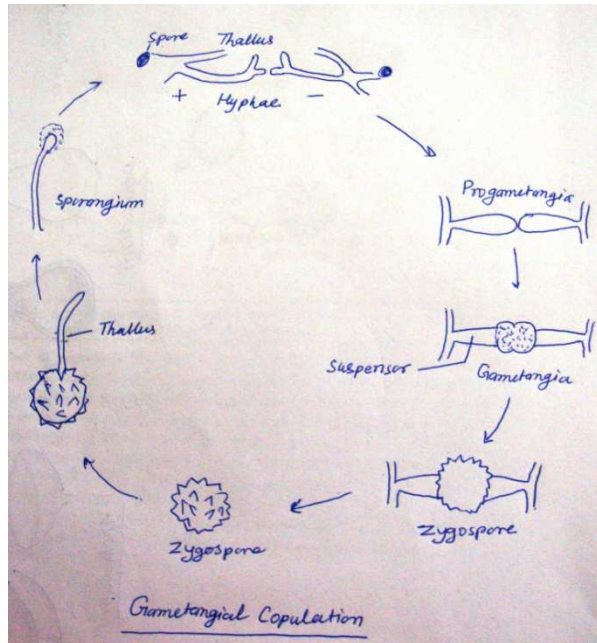 Spore Thallus
+ Hyphae -
Progametangia
Suspensor
Gametangia
Zygospore
Zygospore
Thallus
Sporangium
Gametangial Copulation